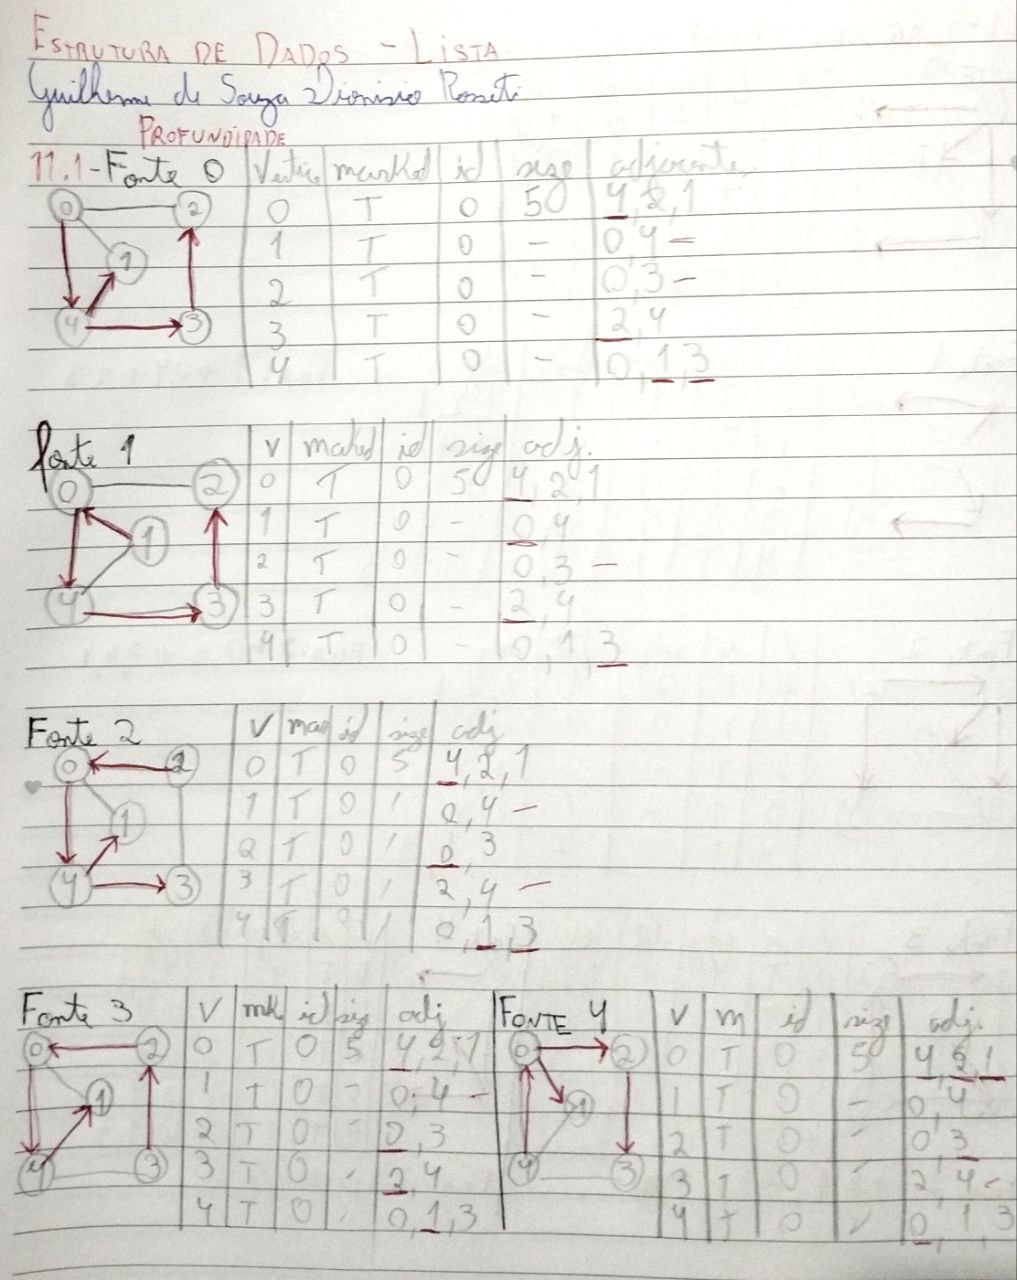 ESTRUTURA DE DADOS - LISTA
Guilherme de Souza Dionisio Rosseti
PROFUNDIDADE
11.1-Fonte 0 Vertice marked id size adjacente
0 T 0 50 4,2,1
1 T 0 - 0,4 -
2 T 0 - 0,3 -
3 T 0 - 2,4
4 T 0 - 0,1,3
0 2
1
4 3
Fonte 1 V maked id size adj.
0 T 0 50 4,2,1
1 T 0 - 0,4
2 T 0 - 0,3 -
3 T 0 - 2,4
4 T 0 - 0,1,3
0 2
1
4 3
Fonte 2 V mar id size adj
0 T 0 5 4,2,1
1 T 0 / 0,4 -
2 T 0 / 0,3
3 T 0 / 2,4 -
4 T 0 / 0,1,3
0 2
1
4 3
Fonte 3 V mk id siz adj
0 T 0 5 4,2,1
1 T 0 - 0,4 -
2 T 0 - 0,3
3 T 0 - 2,4
4 T 0 - 0,1,3
0 2
1
4 3
FONTE 4 V m id size adj.
0 T 0 50 4,2,1
1 T 0 - 0,4
2 T 0 - 0,3
3 T 0 - 2,4 -
4 T 0 / 0,1,3
0 2
1
4 3